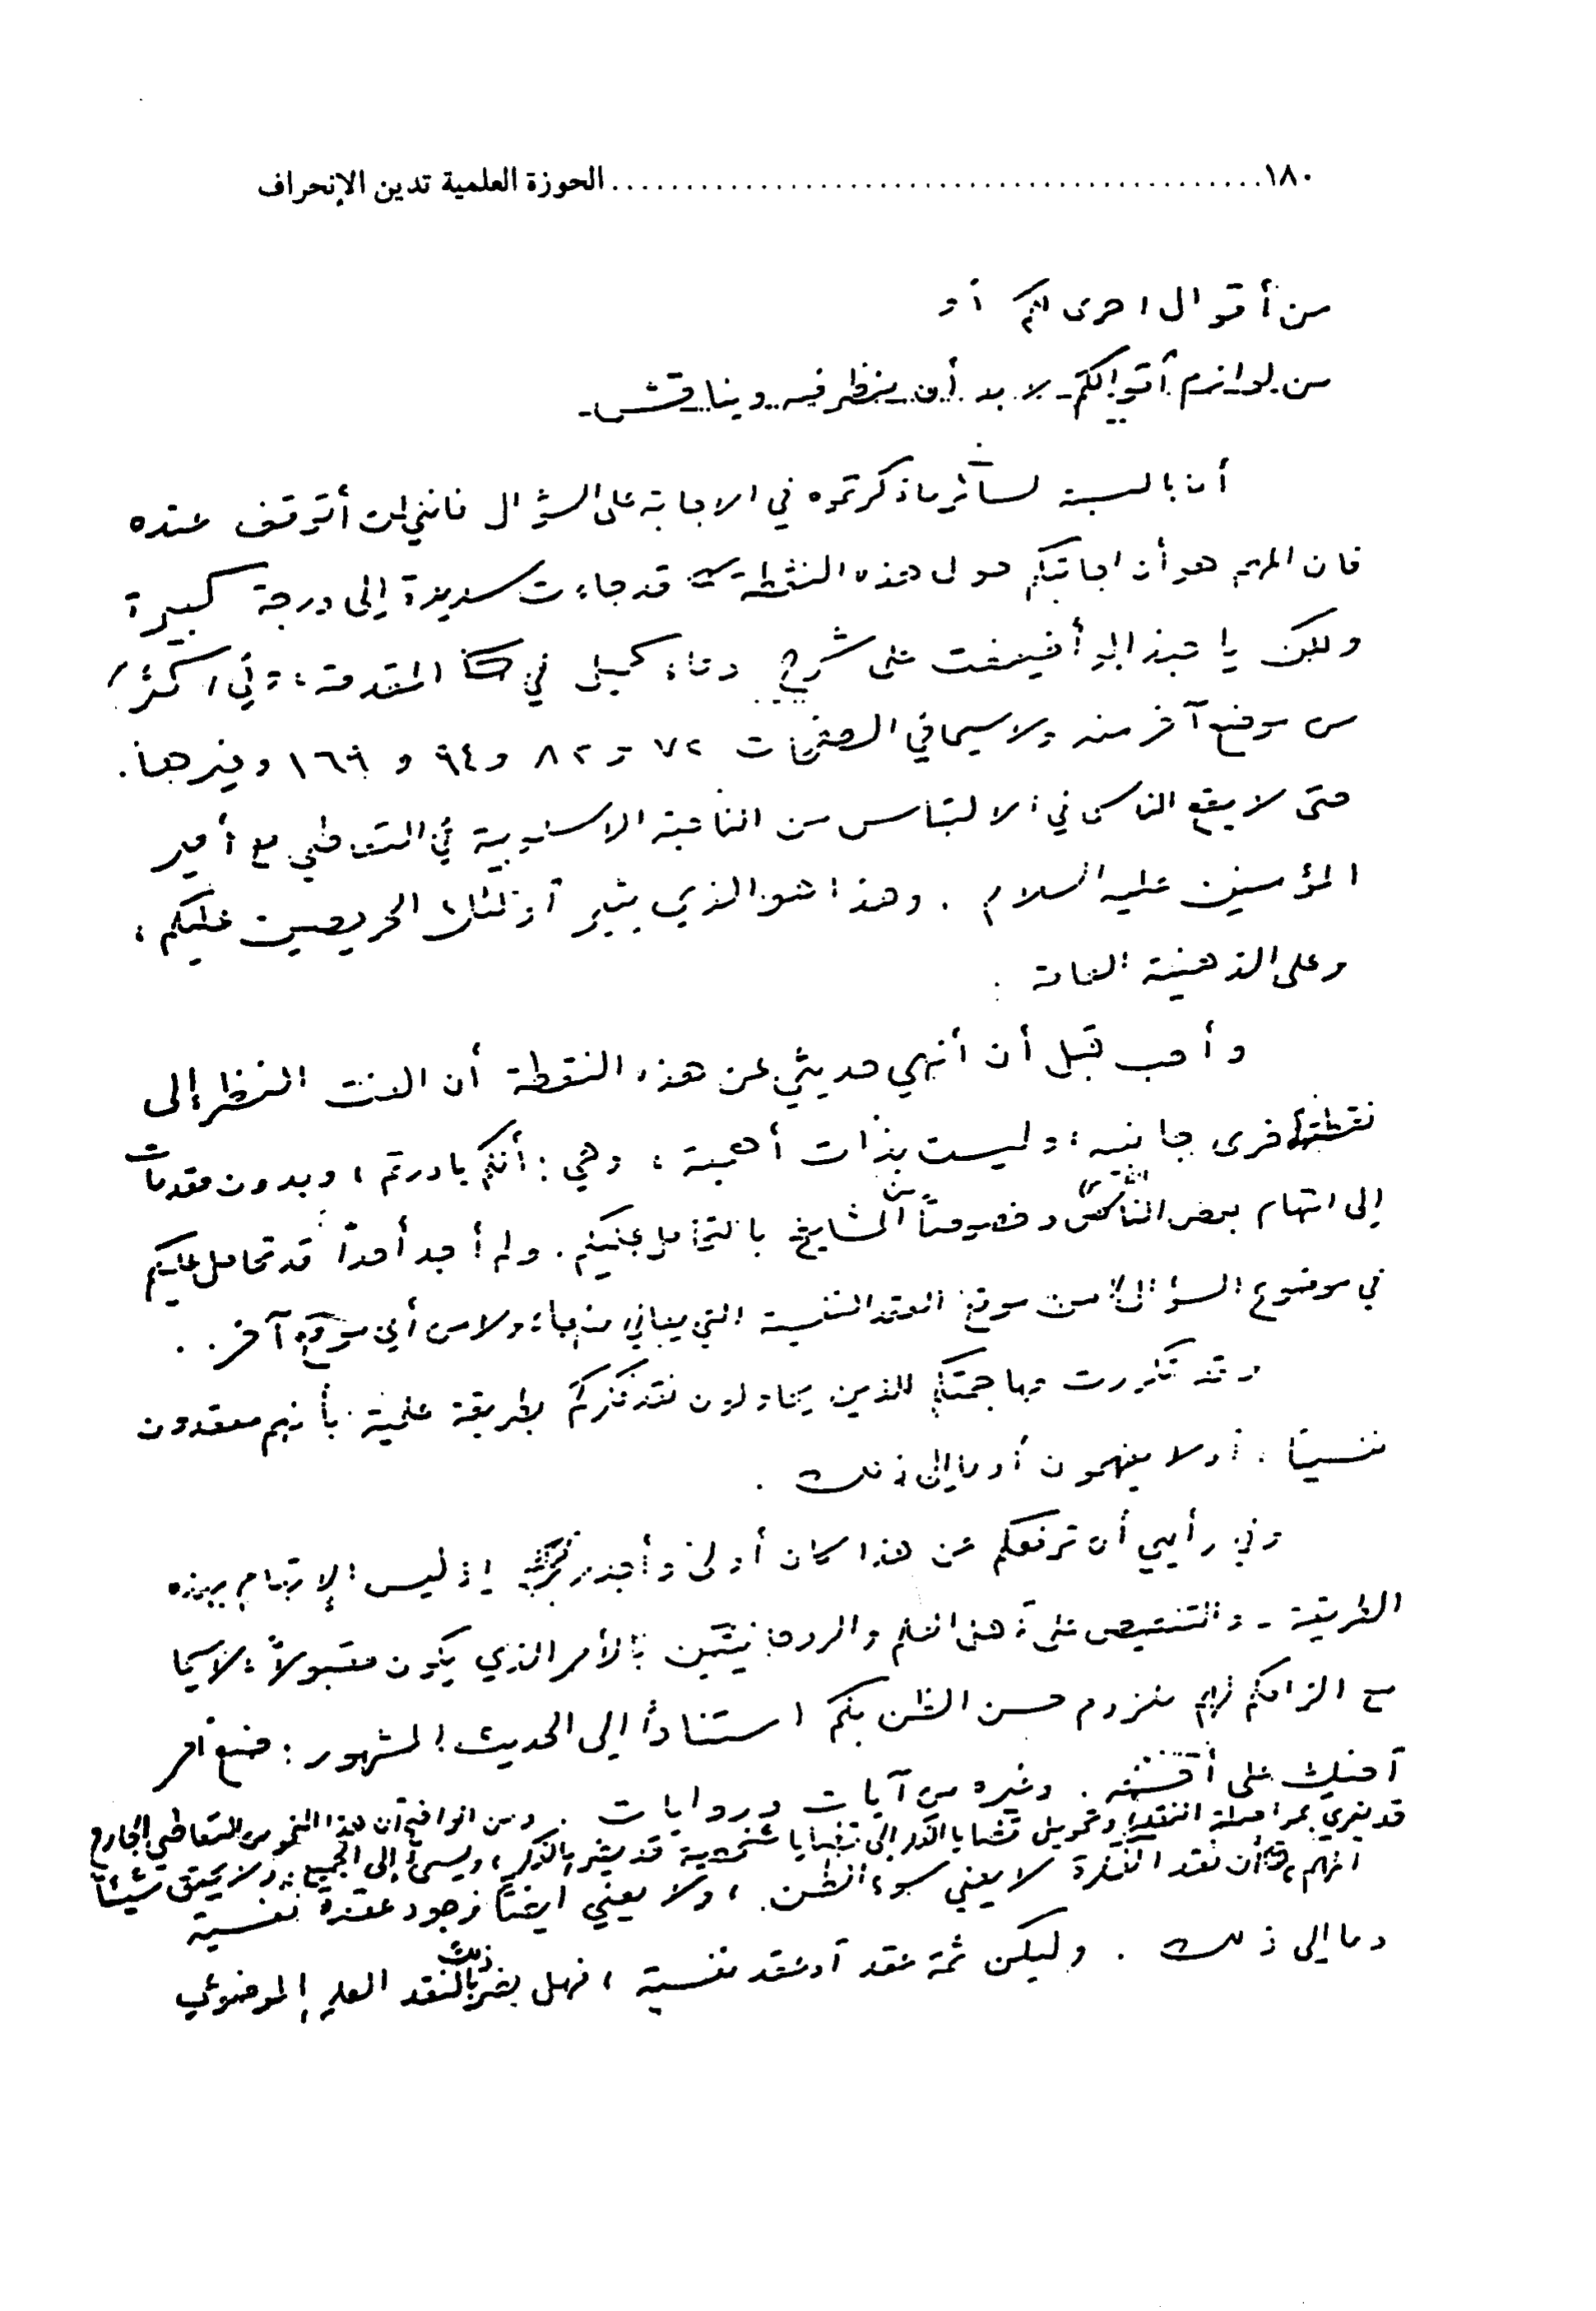 ١٨٠ ............................................ الحوزة العلمية تدين الإنحراف
من أقوال اخرى لكم أو
من لوازم أقوالكم - لا بد أن ينظر فيه ويناقش -
أما بالنسبة لسائر ما ذكرتموه في الاجابة على السؤال فانني لن أتوقف عنده
فان المهم هو أن اجابتكم حول هذه النقطة قد جاءت سديدة إلى درجة كبيرة
ولكن يا حبذا لو أضيفت على شرح دعاء كميل في المقدمة، وفي أكثر
من موضع آخر منه ولا سيما في الصفحات ٧٢ و ٨٢ و ٩٤ و ١٦٩ وغيرها.
حتى لا يقع الناس في الالتباس من الناحية الاسلوبية في التعاطي مع أمير
المؤمنين عليه السلام . وهذا هو الذي يثير أولئك الحريصين عليكم،
وعلى الذهنية العامة .
وأحب قبل أن أنهي حديثي عن هذه النقطة أن الفت النظر إلى
نقطة أخرى جانبية، وليست بذات أهمية ، وهي : أنكم بادرتم ، وبدون مقدمات
إلى اتهام بعض الناس وخصوصاً المشايخ بالتحامل عليكم . ولم أجد أحداً قد تحامل عليكم
في موضوع السؤال لا من موقع العقد النفسية التي يعاني منها، ولا من أي موقع آخر . .
وقد تكررت مهاجمتكم للذين يحاولون نقد فكركم بطريقة علمية بأنهم معقدون
نفسياً . أو لا يفهمون أو ما إلى ذلك .
وفي رأيي أن ترفعكم عن هذا كان أولى وأجدر إذ ليس الإتهام بهذه
الطريقة - والتنقيص على أهل العلم والروحانيين بالأمر الذي يكون مقبولاً، لا سيما
مع الزامكم لهم بلزوم حسن الظن بكم استناداً إلى الحديث المشهور : ضع أمر
أخيك على أحسنه . وغيره من آيات وروايات . ومن الواضح أن هذا النحو من التعاطي الجارح
قد يغري بمواصلة النقد، وتحويل قضايا الفكر إلى قضايا شخصية قد يضر بالفكر، ويسيء إلى الجميع، ولا يحقق شيئاً
المهم، أن نقد الفكرة لا يعني سوء الظن ، ولا يعني ايضاً وجود عقدة نفسية
وما إلى ذلك . وليكن ثمة عقد أو عقد نفسية ، فهل يضر ذلك بالنقد العلمي الموضوعي